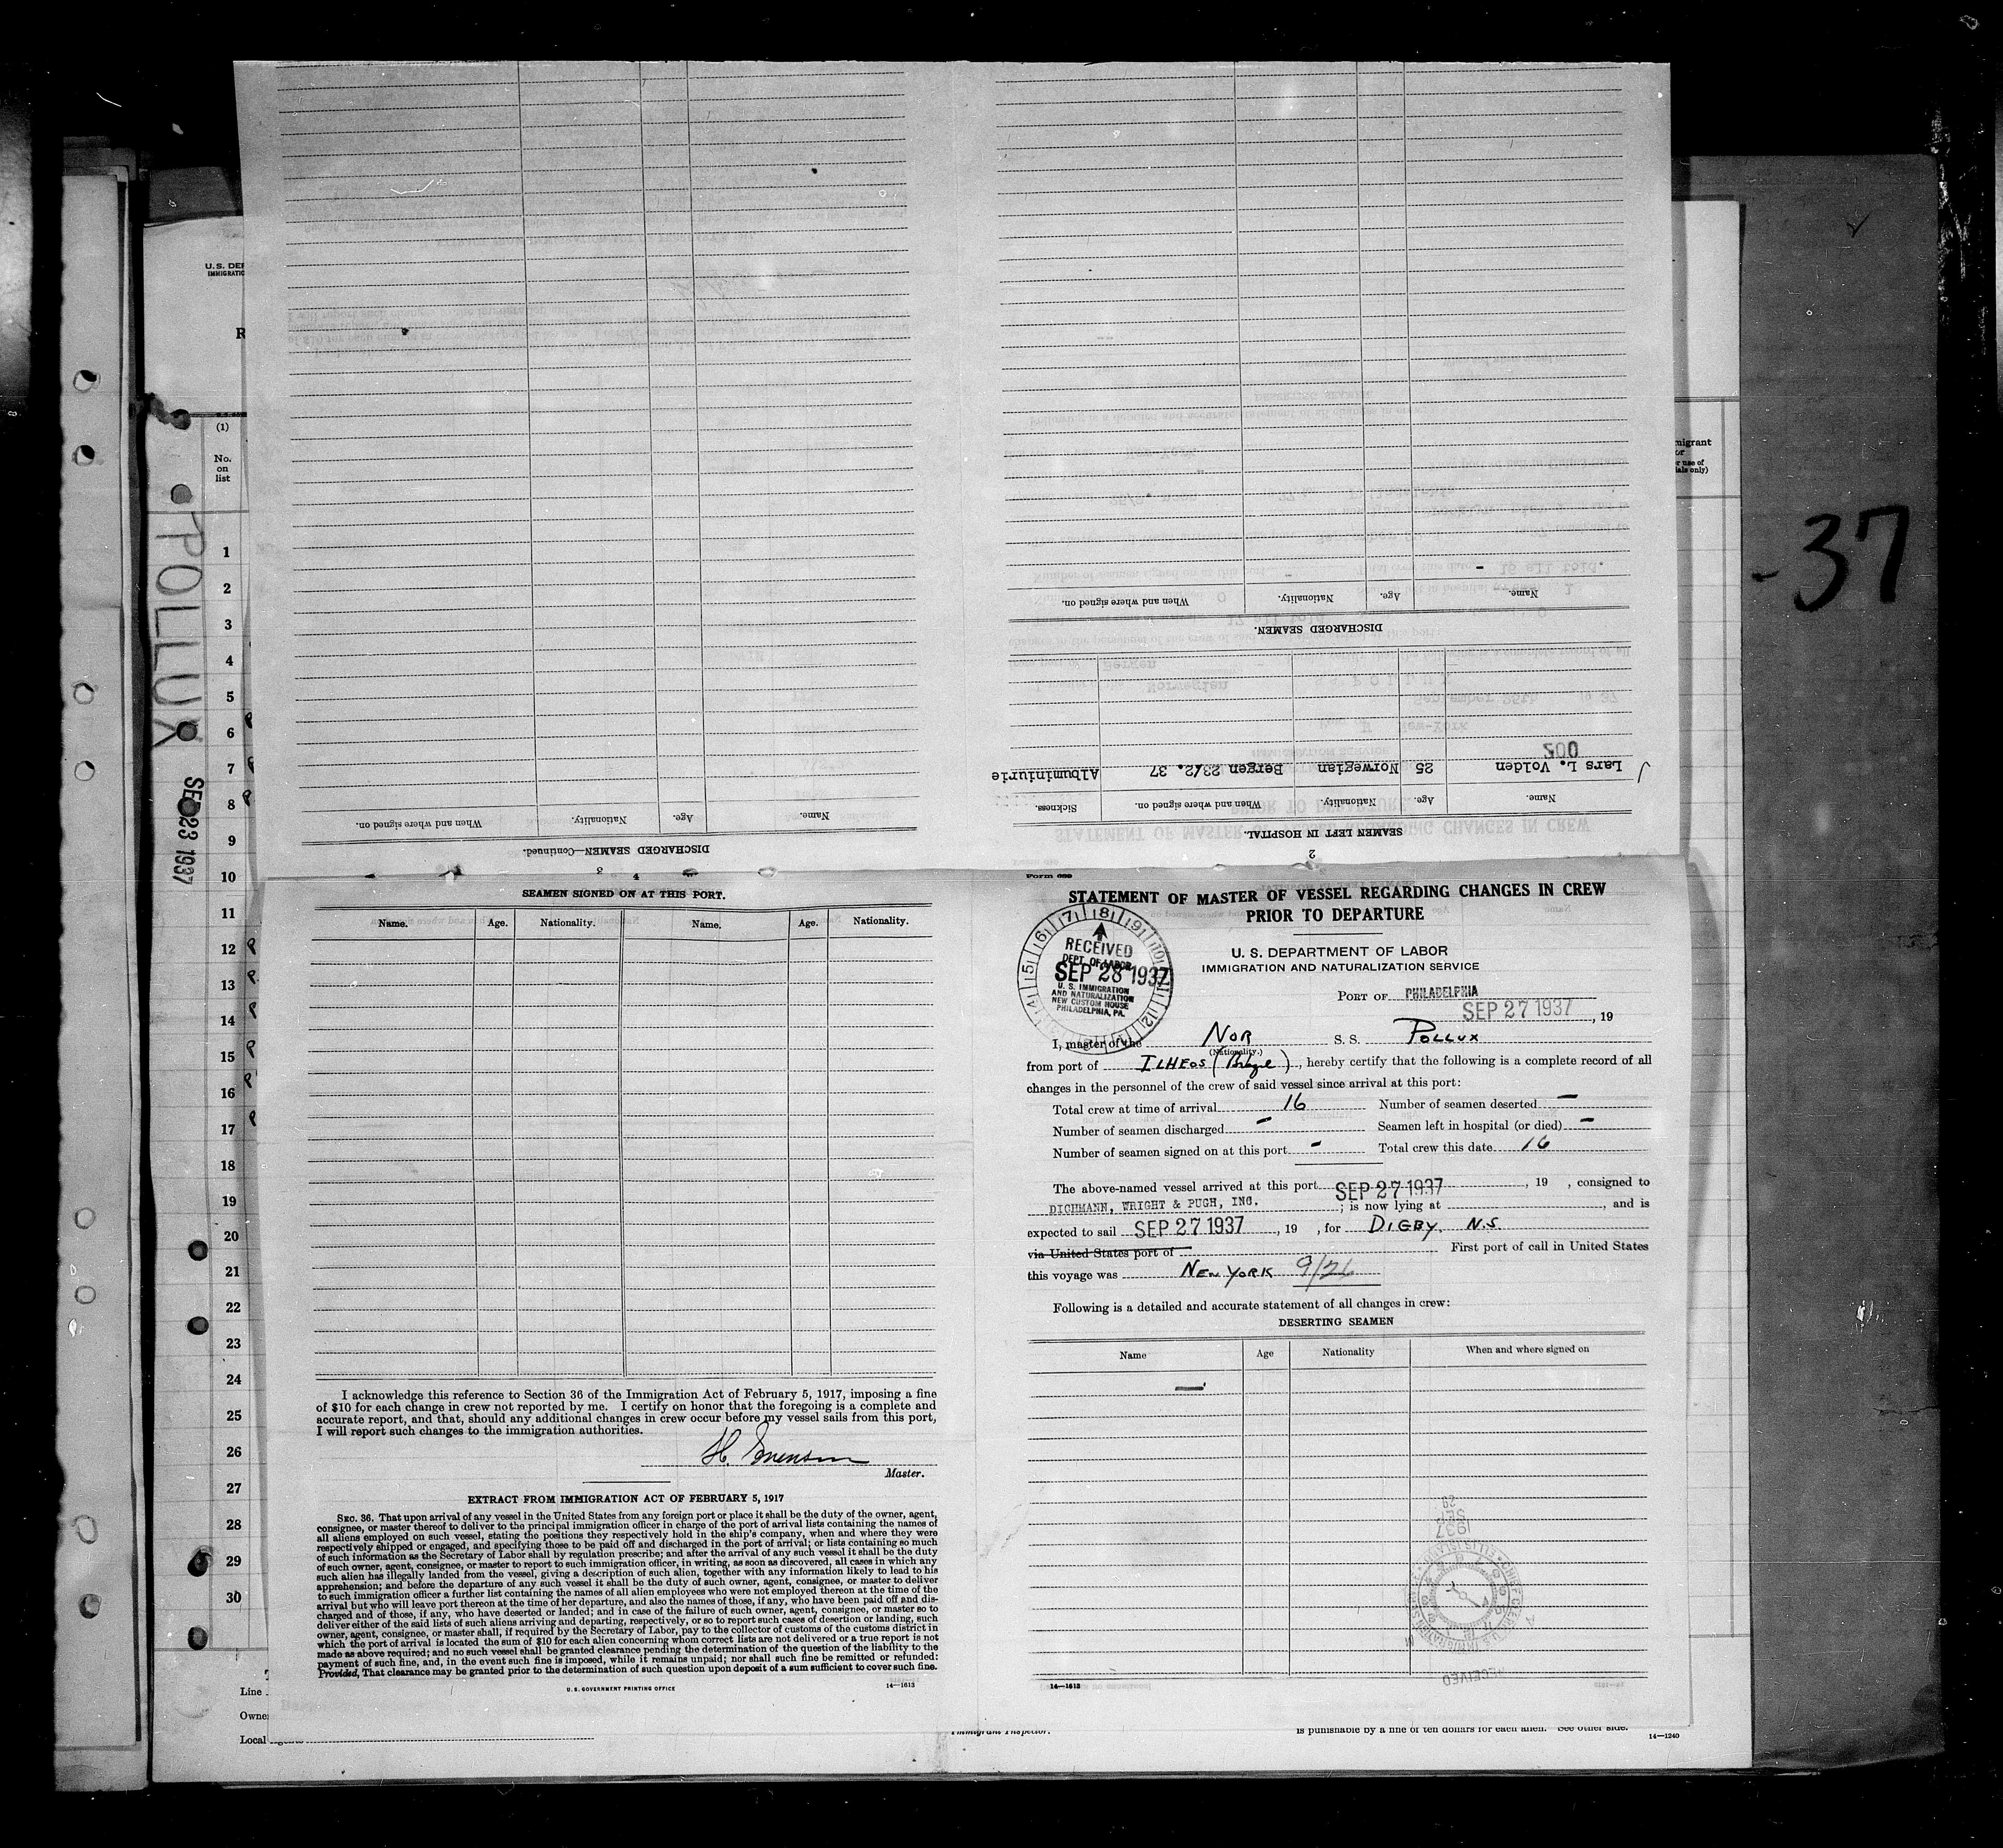 U. S. DEP
IMMIGRATIC
R
(1)
No.
on
list
POLLUX
SEP 23 1937
1
2
3
4
5
6
7
8
9
10
11
12
13
14
15
16
17
18
19
20
21
22
23
24
25
26
27
28
29
30
Line
Owne
Local
-37
migrant
or
r use of
ials only)
DISCHARGED SEAMEN—Continued.
Name. Age. Nationality. When and where signed on.
3
2
SEAMEN LEFT IN HOSPITAL.
Name. Age. Nationality. When and where signed on. Sickness.
Lars L. Volden 25 Norwegian Bergen 23/2. 37 Albuminiurie
200
DISCHARGED SEAMEN.
Name. Age. Nationality. When and where signed on.
4
SEAMEN SIGNED ON AT THIS PORT.
Name. Age. Nationality. Name. Age. Nationality.
I acknowledge this reference to Section 36 of the Immigration Act of February 5, 1917, imposing a fine
of $10 for each change in crew not reported by me. I certify on honor that the foregoing is a complete and
accurate report, and that, should any additional changes in crew occur before my vessel sails from this port,
I will report such changes to the immigration authorities.
H. Evensen
Master.
EXTRACT FROM IMMIGRATION ACT OF FEBRUARY 5, 1917
SEC. 36. That upon arrival of any vessel in the United States from any foreign port or place it shall be the duty of the owner, agent,
consignee, or master thereof to deliver to the principal immigration officer in charge of the port of arrival lists containing the names of
all aliens employed on such vessel, stating the positions they respectively hold in the ship's company, when and where they were
respectively shipped or engaged, and specifying those to be paid off and discharged in the port of arrival; or lists containing so much
of such information as the Secretary of Labor shall by regulation prescribe; and after the arrival of any such vessel it shall be the duty
of such owner, agent, consignee, or master to report to such immigration officer, in writing, as soon as discovered, all cases in which any
such alien has illegally landed from the vessel, giving a description of such alien, together with any information likely to lead to his
apprehension; and before the departure of any such vessel it shall be the duty of such owner, agent, consignee, or master to deliver
to such immigration officer a further list containing the names of all alien employees who were not employed thereon at the time of the
arrival but who will leave port thereon at the time of her departure, and also the names of those, if any, who have been paid off and dis-
charged and of those, if any, who have deserted or landed; and in case of the failure of such owner, agent, consignee, or master so to
deliver either of the said lists of such aliens arriving and departing, respectively, or so to report such cases of desertion or landing, such
owner, agent, consignee, or master shall, if required by the Secretary of Labor, pay to the collector of customs of the customs district in
which the port of arrival is located the sum of $10 for each alien concerning whom correct lists are not delivered or a true report is not
made as above required; and no such vessel shall be granted clearance pending the determination of the question of the liability to the
payment of such fine, and, in the event such fine is imposed, while it remains unpaid; nor shall such fine be remitted or refunded:
Provided, That clearance may be granted prior to the determination of such question upon deposit of a sum sufficient to cover such fine.
U. S. GOVERNMENT PRINTING OFFICE 14—1613
Form 689
STATEMENT OF MASTER OF VESSEL REGARDING CHANGES IN CREW
PRIOR TO DEPARTURE
U. S. DEPARTMENT OF LABOR
IMMIGRATION AND NATURALIZATION SERVICE
RECEIVED
DEPT. OF LABOR
SEP 28 1937
U. S. IMMIGRATION
AND NATURALIZATION
NEW CUSTOM HOUSE
PHILADELPHIA, PA.
PORT OF PHILADELPHIA
SEP 27 1937, 19
I, master of the NOR S. S. POLLUX
(Nationality.)
from port of ILHEOS (Brazil), hereby certify that the following is a complete record of all
changes in the personnel of the crew of said vessel since arrival at this port:
Total crew at time of arrival 16 Number of seamen deserted –
Number of seamen discharged – Seamen left in hospital (or died) –
Number of seamen signed on at this port – Total crew this date 16
The above-named vessel arrived at this port SEP 27 1937, 19 , consigned to
DICHMANN, WRIGHT & PUGH, INC. ; is now lying at , and is
expected to sail SEP 27 1937, 19 , for DIGBY, N.S.
via United States port of First port of call in United States
this voyage was NEW YORK 9/26
Following is a detailed and accurate statement of all changes in crew:
DESERTING SEAMEN
Name Age Nationality When and where signed on
—
RECEIVED
14—1613
Immigrant Inspector.
is punishable by a fine of ten dollars for each alien. See other side.
14—1240